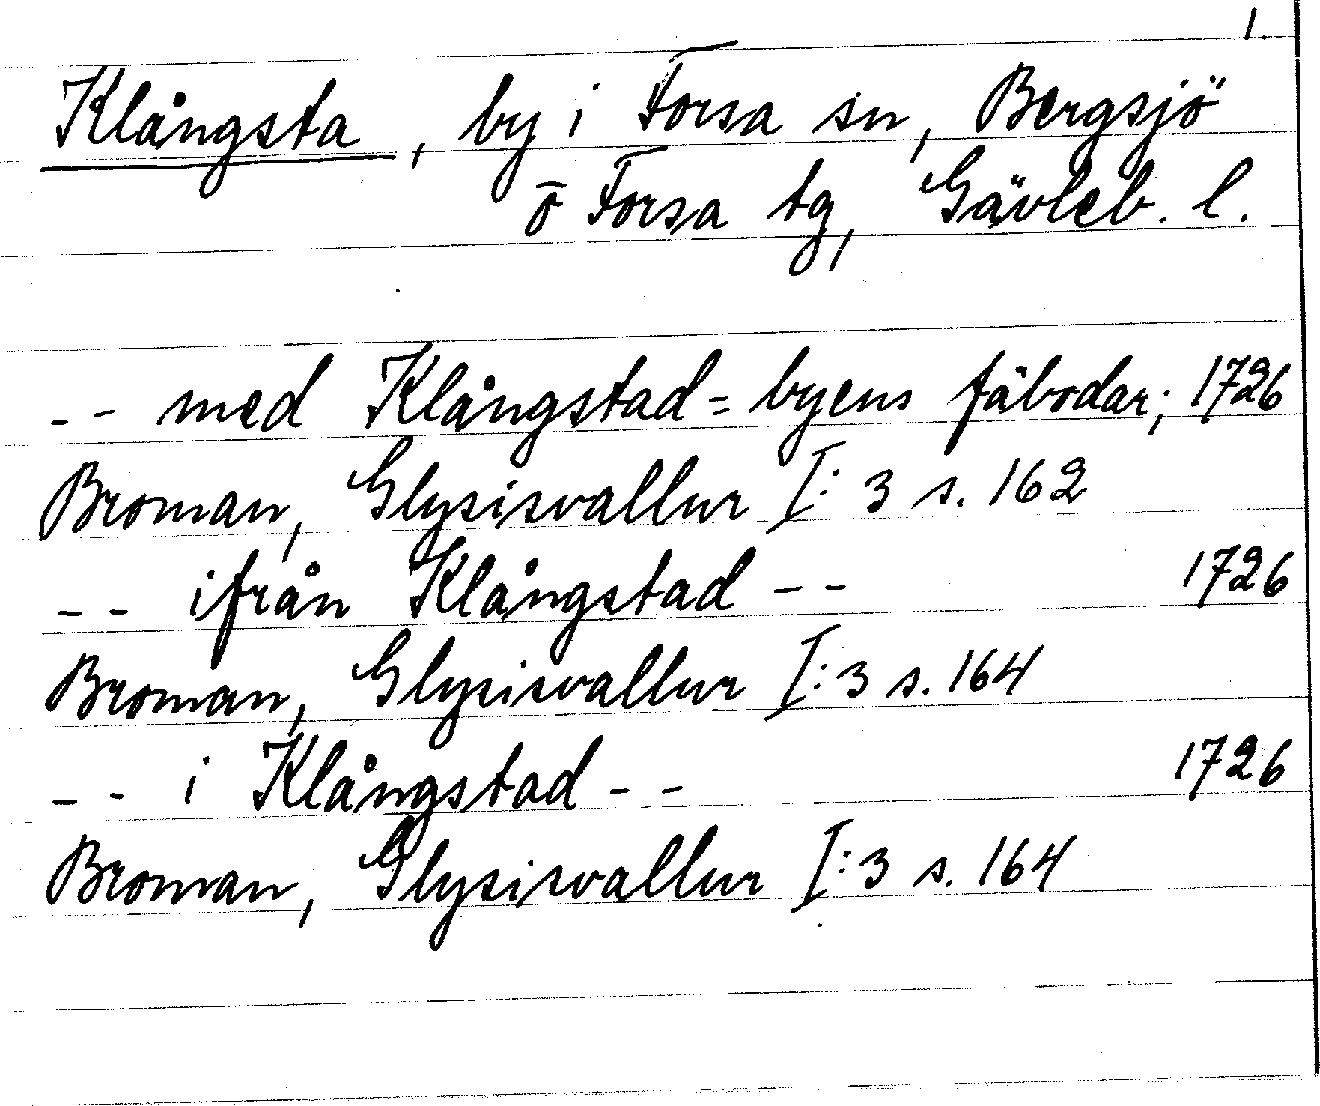 1.
Klångsta, by i Forsa sn, Bergsjö
o̅ Forsa tg, Gävleb. l.
-- med Klångstad=byens fäbodar; 1726
Broman, Glysisvallur I:3 s. 162
-- ifrån Klångstad -- 1726
Broman, Glysisvallur I:3 s. 164
-- i Klångstad -- 1726
Broman, Glysisvallur I:3 s. 164